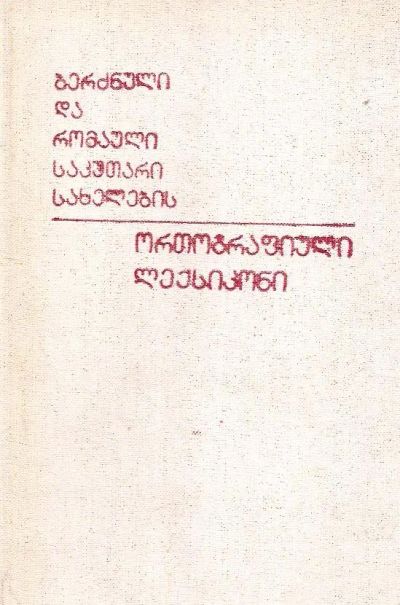 ბერძნული
და
რომაული
საკუთარი
სახელების
ორთოგრაფიული
ლექსიკონი